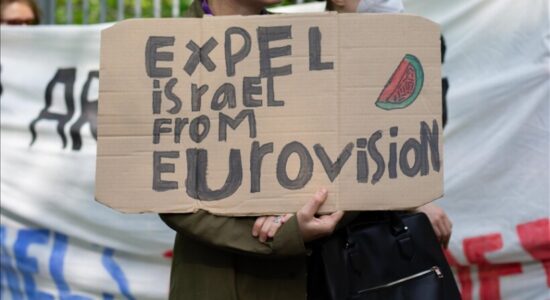 EXPEL
israel
FROM
EUrovisioN